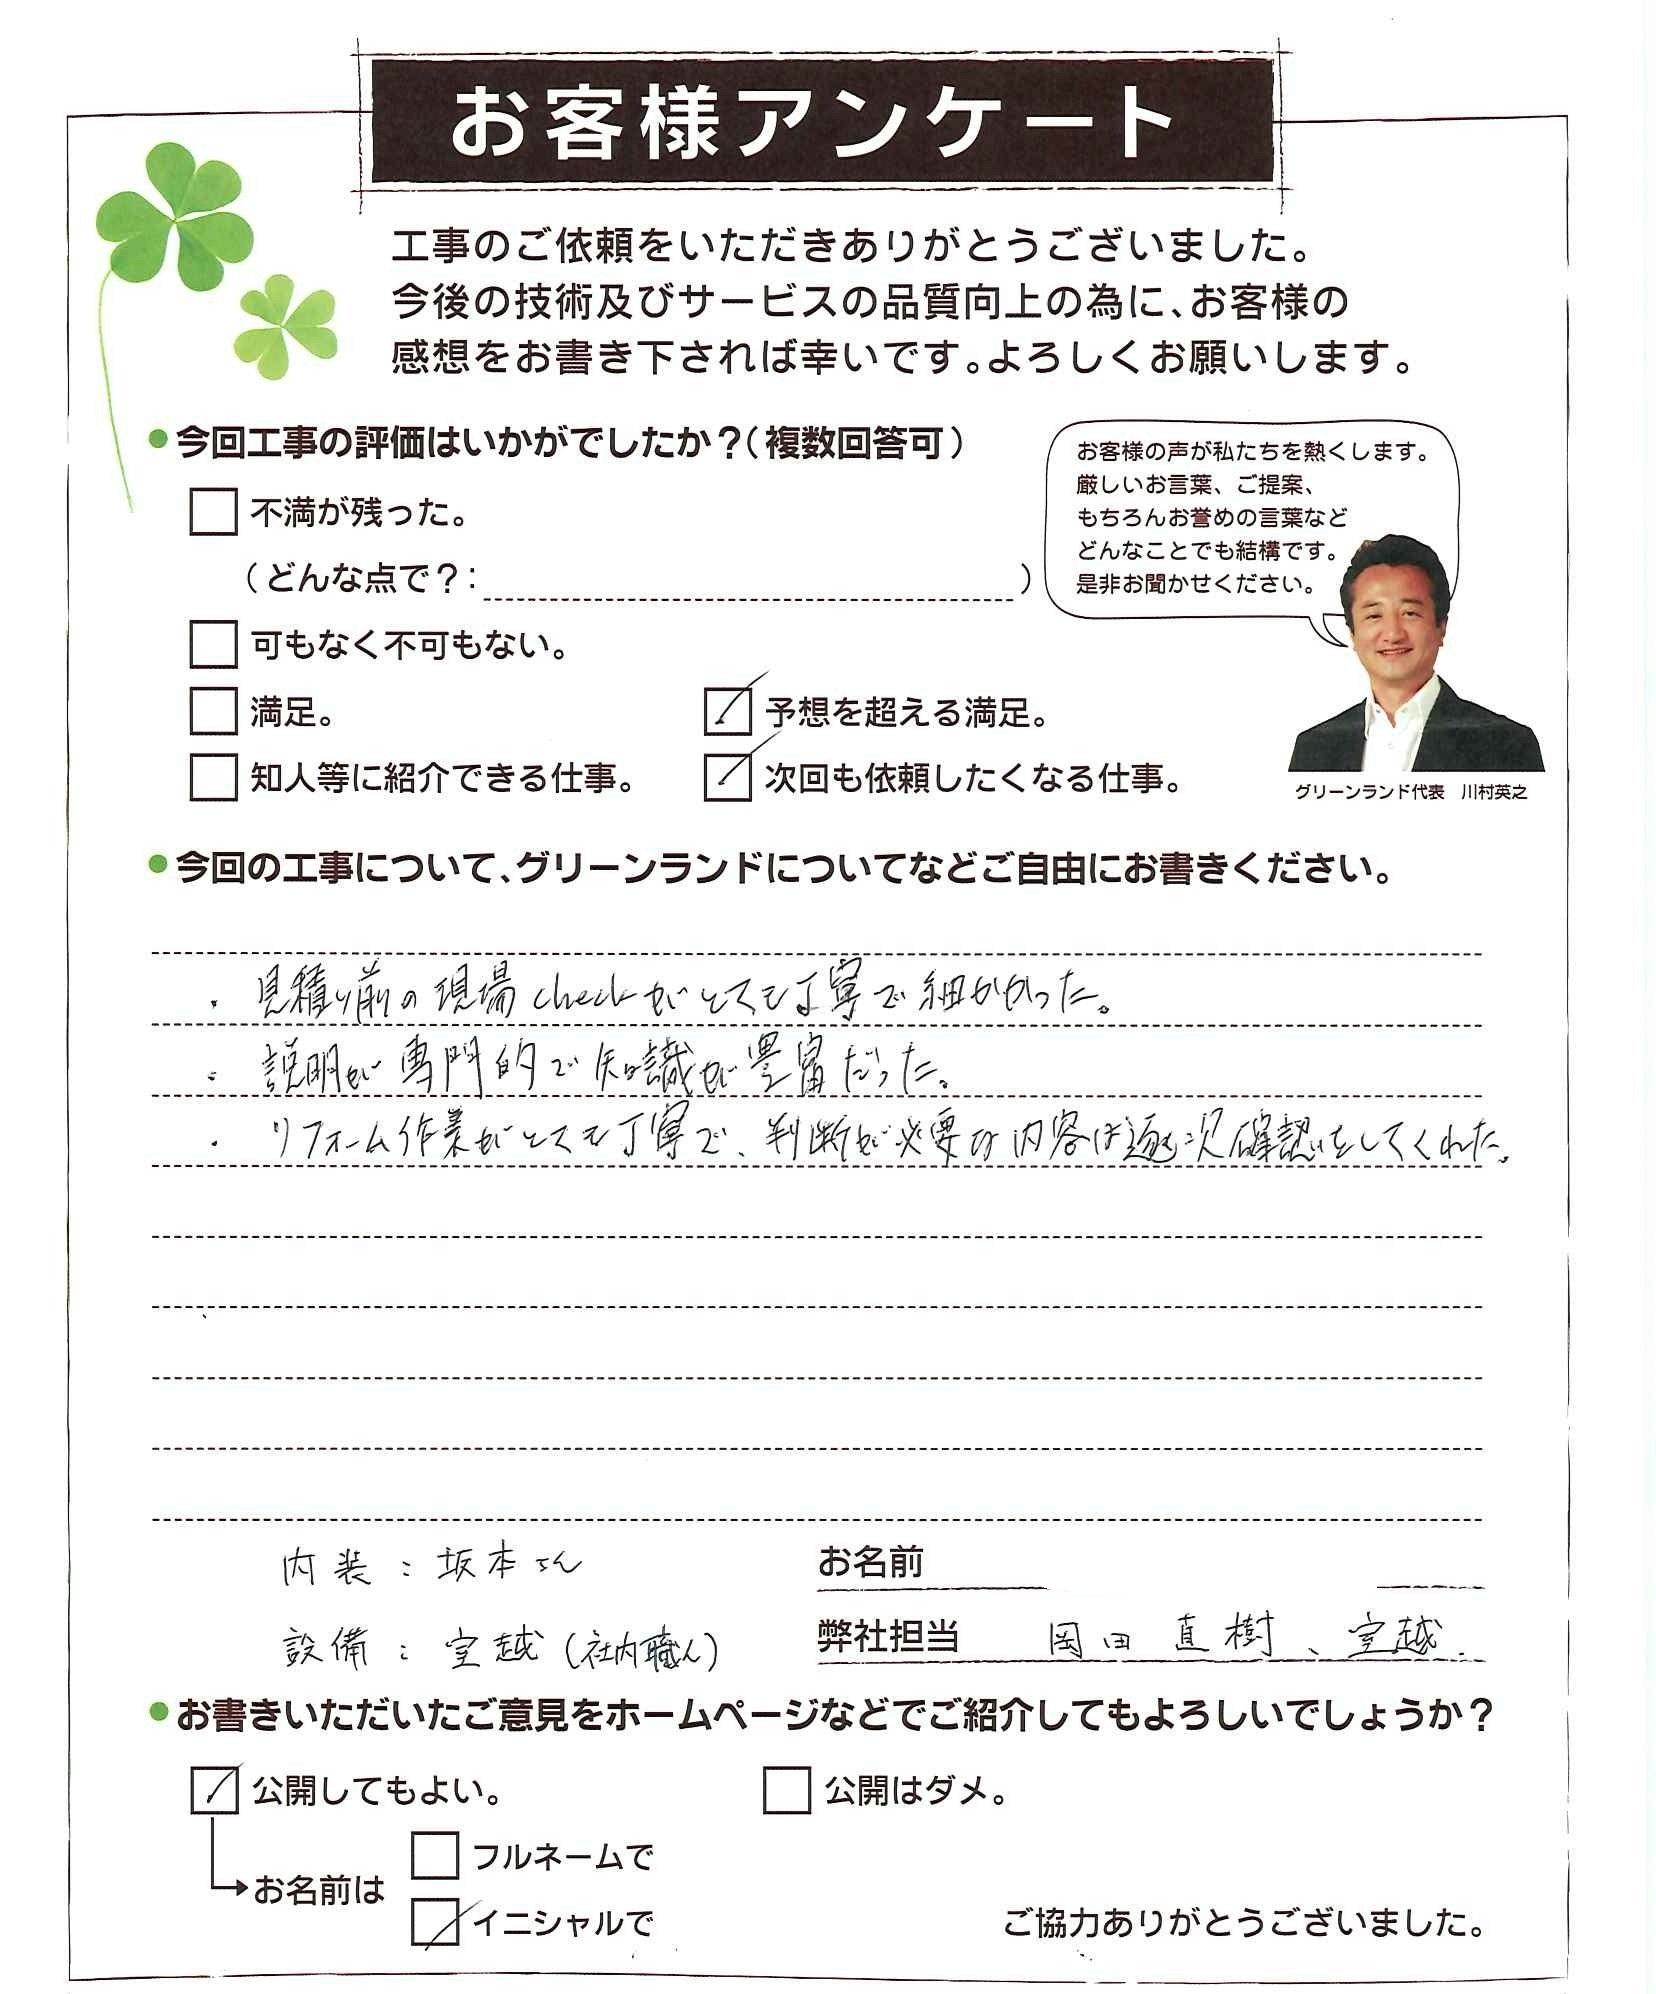 お客様アンケート
工事のご依頼をいただきありがとうございました。
今後の技術及びサービスの品質向上の為に、お客様の
感想をお書き下されば幸いです。よろしくお願いします。
●今回工事の評価はいかがでしたか？（複数回答可）
不満が残った。
（どんな点で？：）
可もなく不可もない。
満足。
予想を超える満足。
知人等に紹介できる仕事。
次回も依頼したくなる仕事。
お客様の声が私たちを熱くします。
厳しいお言葉、ご提案、
もちろんお誉めの言葉など
どんなことでも結構です。
是非お聞かせください。
グリーンランド代表　川村英之
●今回の工事について、グリーンランドについてなどご自由にお書きください。
・見積り前の現場checkがとても丁寧で細かかった。
・説明が専門的で知識が豊富だった。
・リフォーム作業がとても丁寧で、判断が必要な内容は逐次確認をしてくれた。
内装：坂本さん
設備：室越（社内職人）
お名前
弊社担当　岡田 直樹、室越
●お書きいただいたご意見をホームページなどでご紹介してもよろしいでしょうか？
公開してもよい。
公開はダメ。
お名前は
フルネームで
イニシャルで
ご協力ありがとうございました。